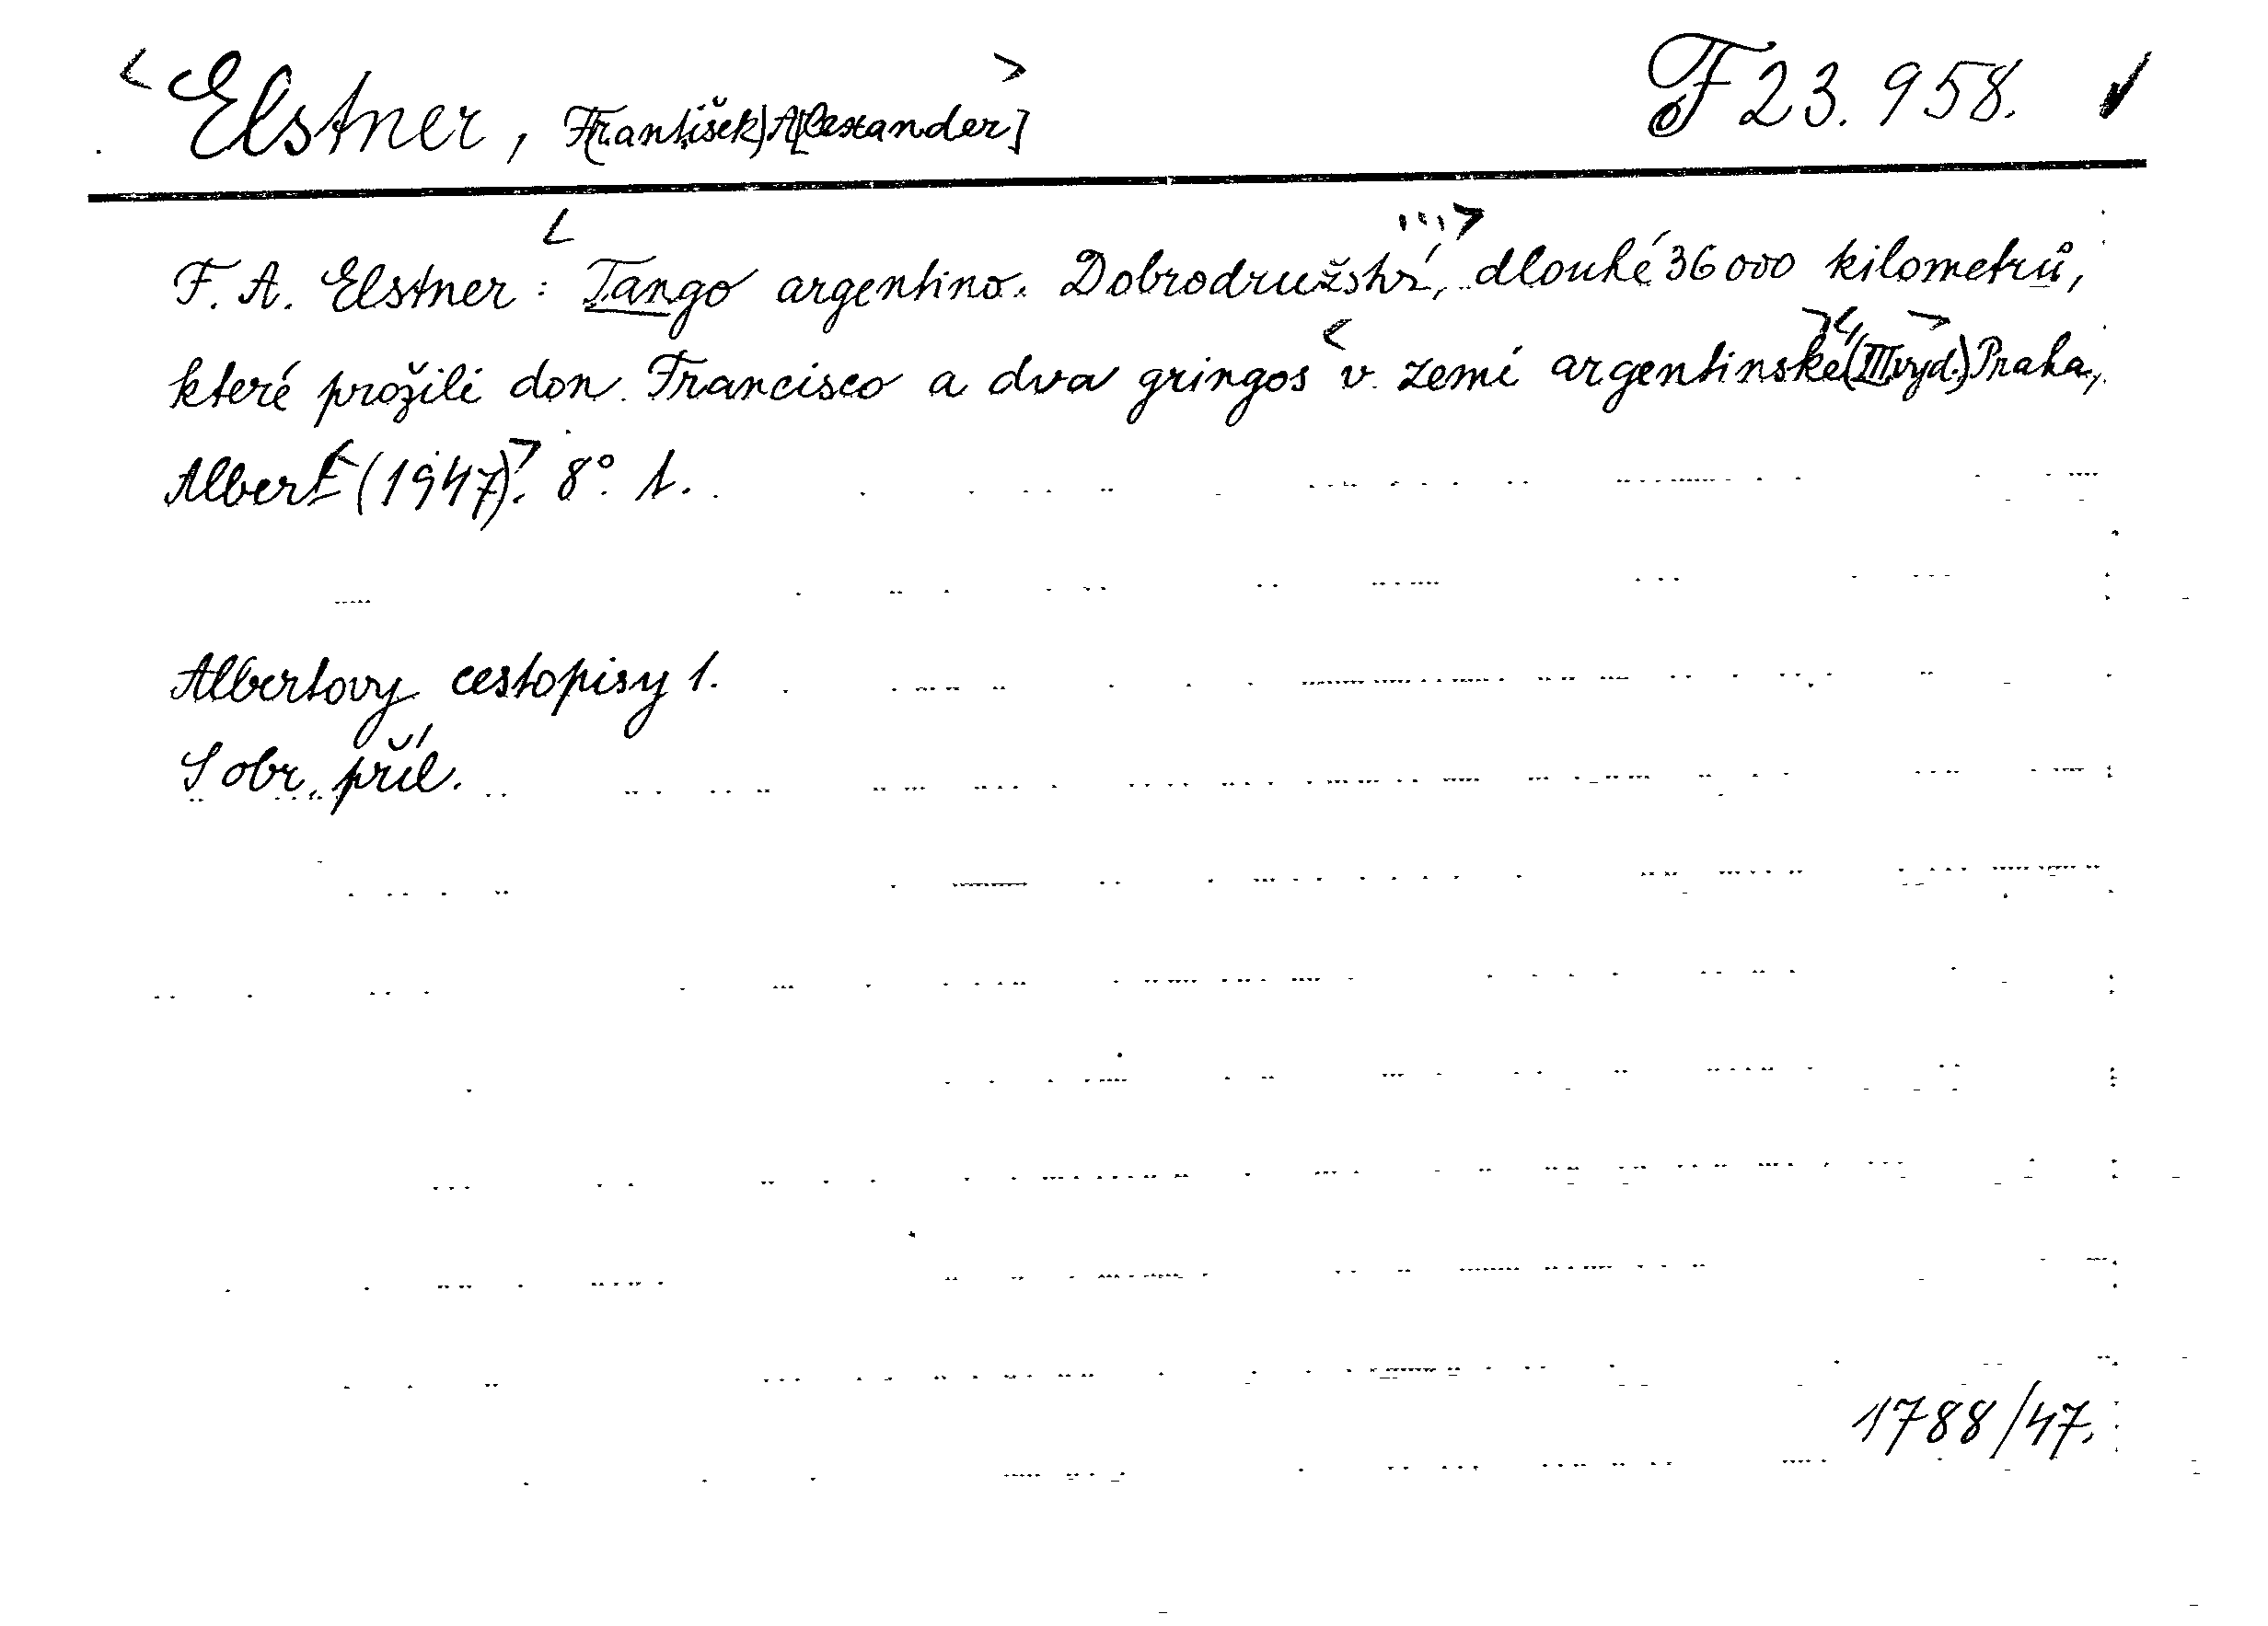 <Elstner, F[rantišek] A[lexander]> F 23.958. ✓
F. A. Elstner: <Tango argentino. Dobrodružství, ...> dlouhé 36000 kilometrů,
které prožili don Francisco a dva gringos <v zemi argentinské> <(III. vyd.)> Praha,
Albert <(1947)>. 8°. 1.
Albertovy cestopisy 1.
S obr. příl.
1788/47.